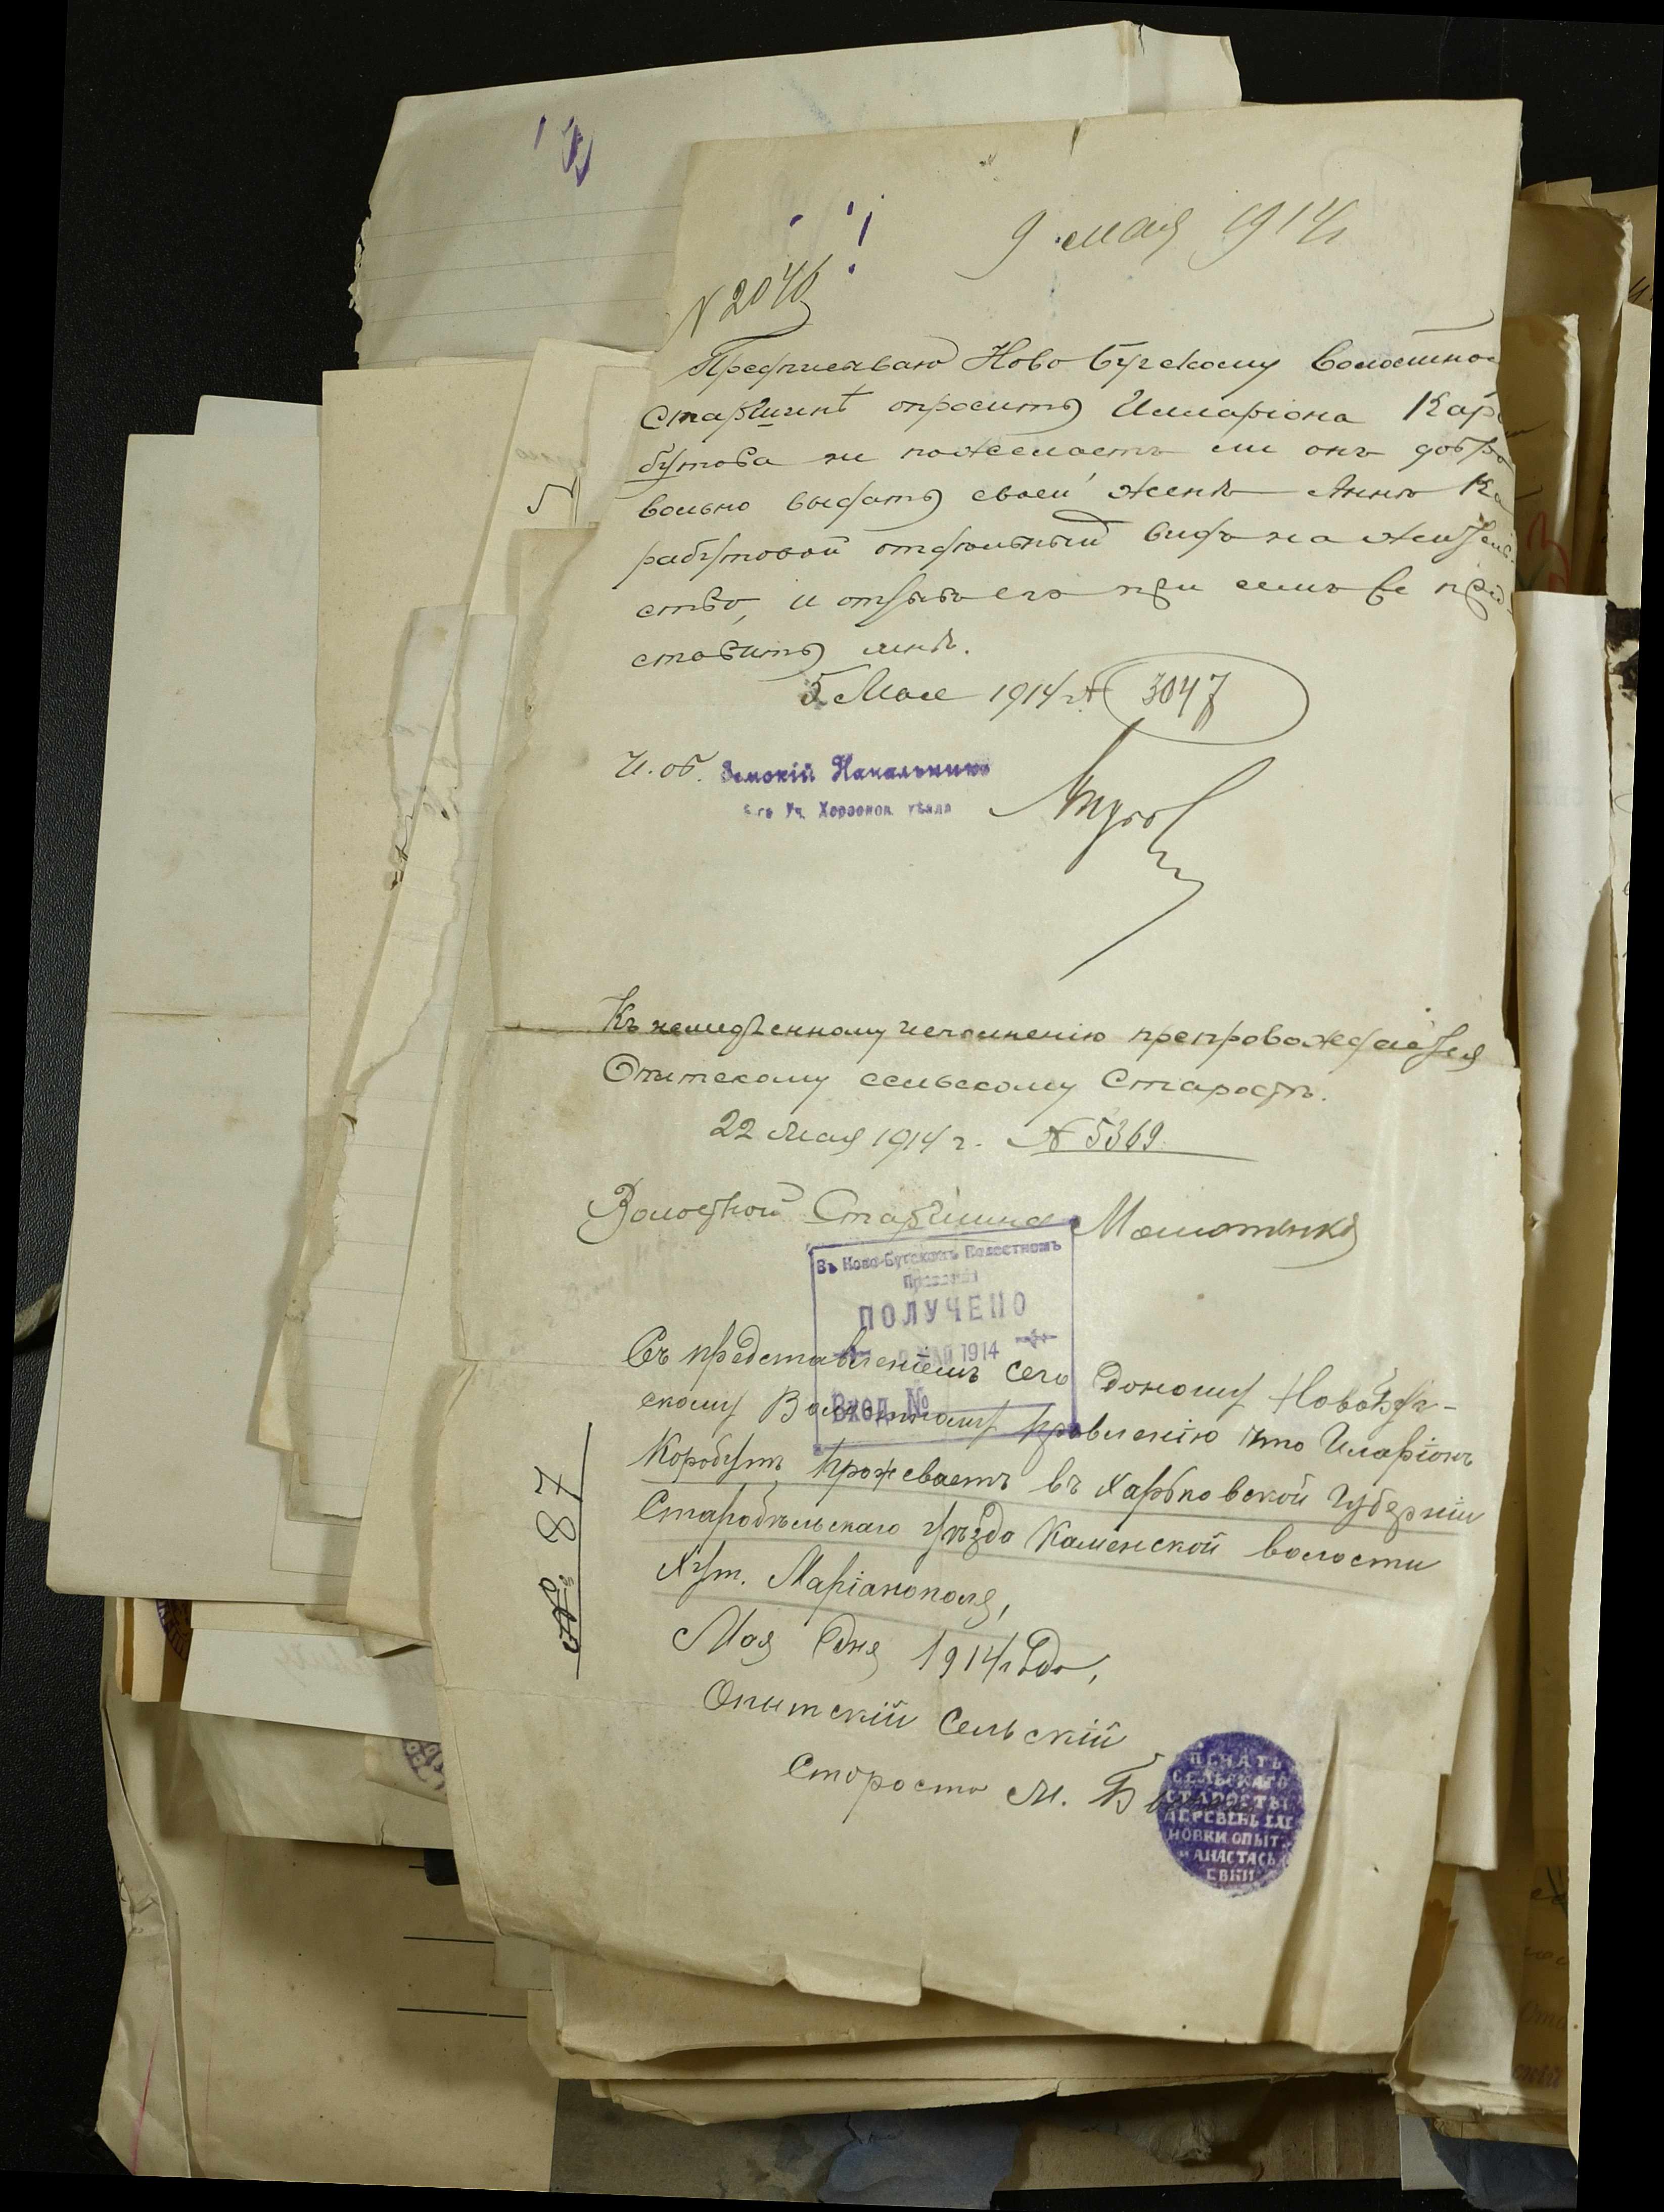 9 мая 1914 г
N 2046
Предписываю Ново Бугскому Волостно
Старшинѣ опросить Иллариона Кара
бутова не пожелаетъ ли онъ добро
вольно выдать своей женѣ Аннѣ Ка
рабутовой отдѣльный видъ на житель
ство, и отзывъ его при семъ пред
ставить мнѣ.
5 Мая 1914 г. № 3047
И. об. Земскій Начальникъ
Уч. Херсонск. уѣзда
Къ немедленному исполненію препровождается
Опытскому сельскому Старостѣ.
22 Мая 1914 г. № 5369
Волостной Старшина
Въ Ново-Бугскомъ Волостномъ
Правленіи
ПОЛУЧЕНО
МАЙ 1914
Вход. №
Съ представленіемъ сего Доношу Новобуг-
скому Волостному Правленію что Иларіонъ
Коробутъ Проживаетъ въ Харьковской Губерніи
Старобѣльскаго уѣздо Каменской волости
Хут. Маріанополя,
№ 87
Мая Дня 1914 года,
Опытскій Сельскій
Старосто М.
ПЕЧАТЬ
СЕЛЬСКАГО
СТАРОСТЫ
ДЕРЕВЕНЬ ЕЛЕ
НОВКИ ОПЫТ
И АНАСТАСЬ
ЕВКИ